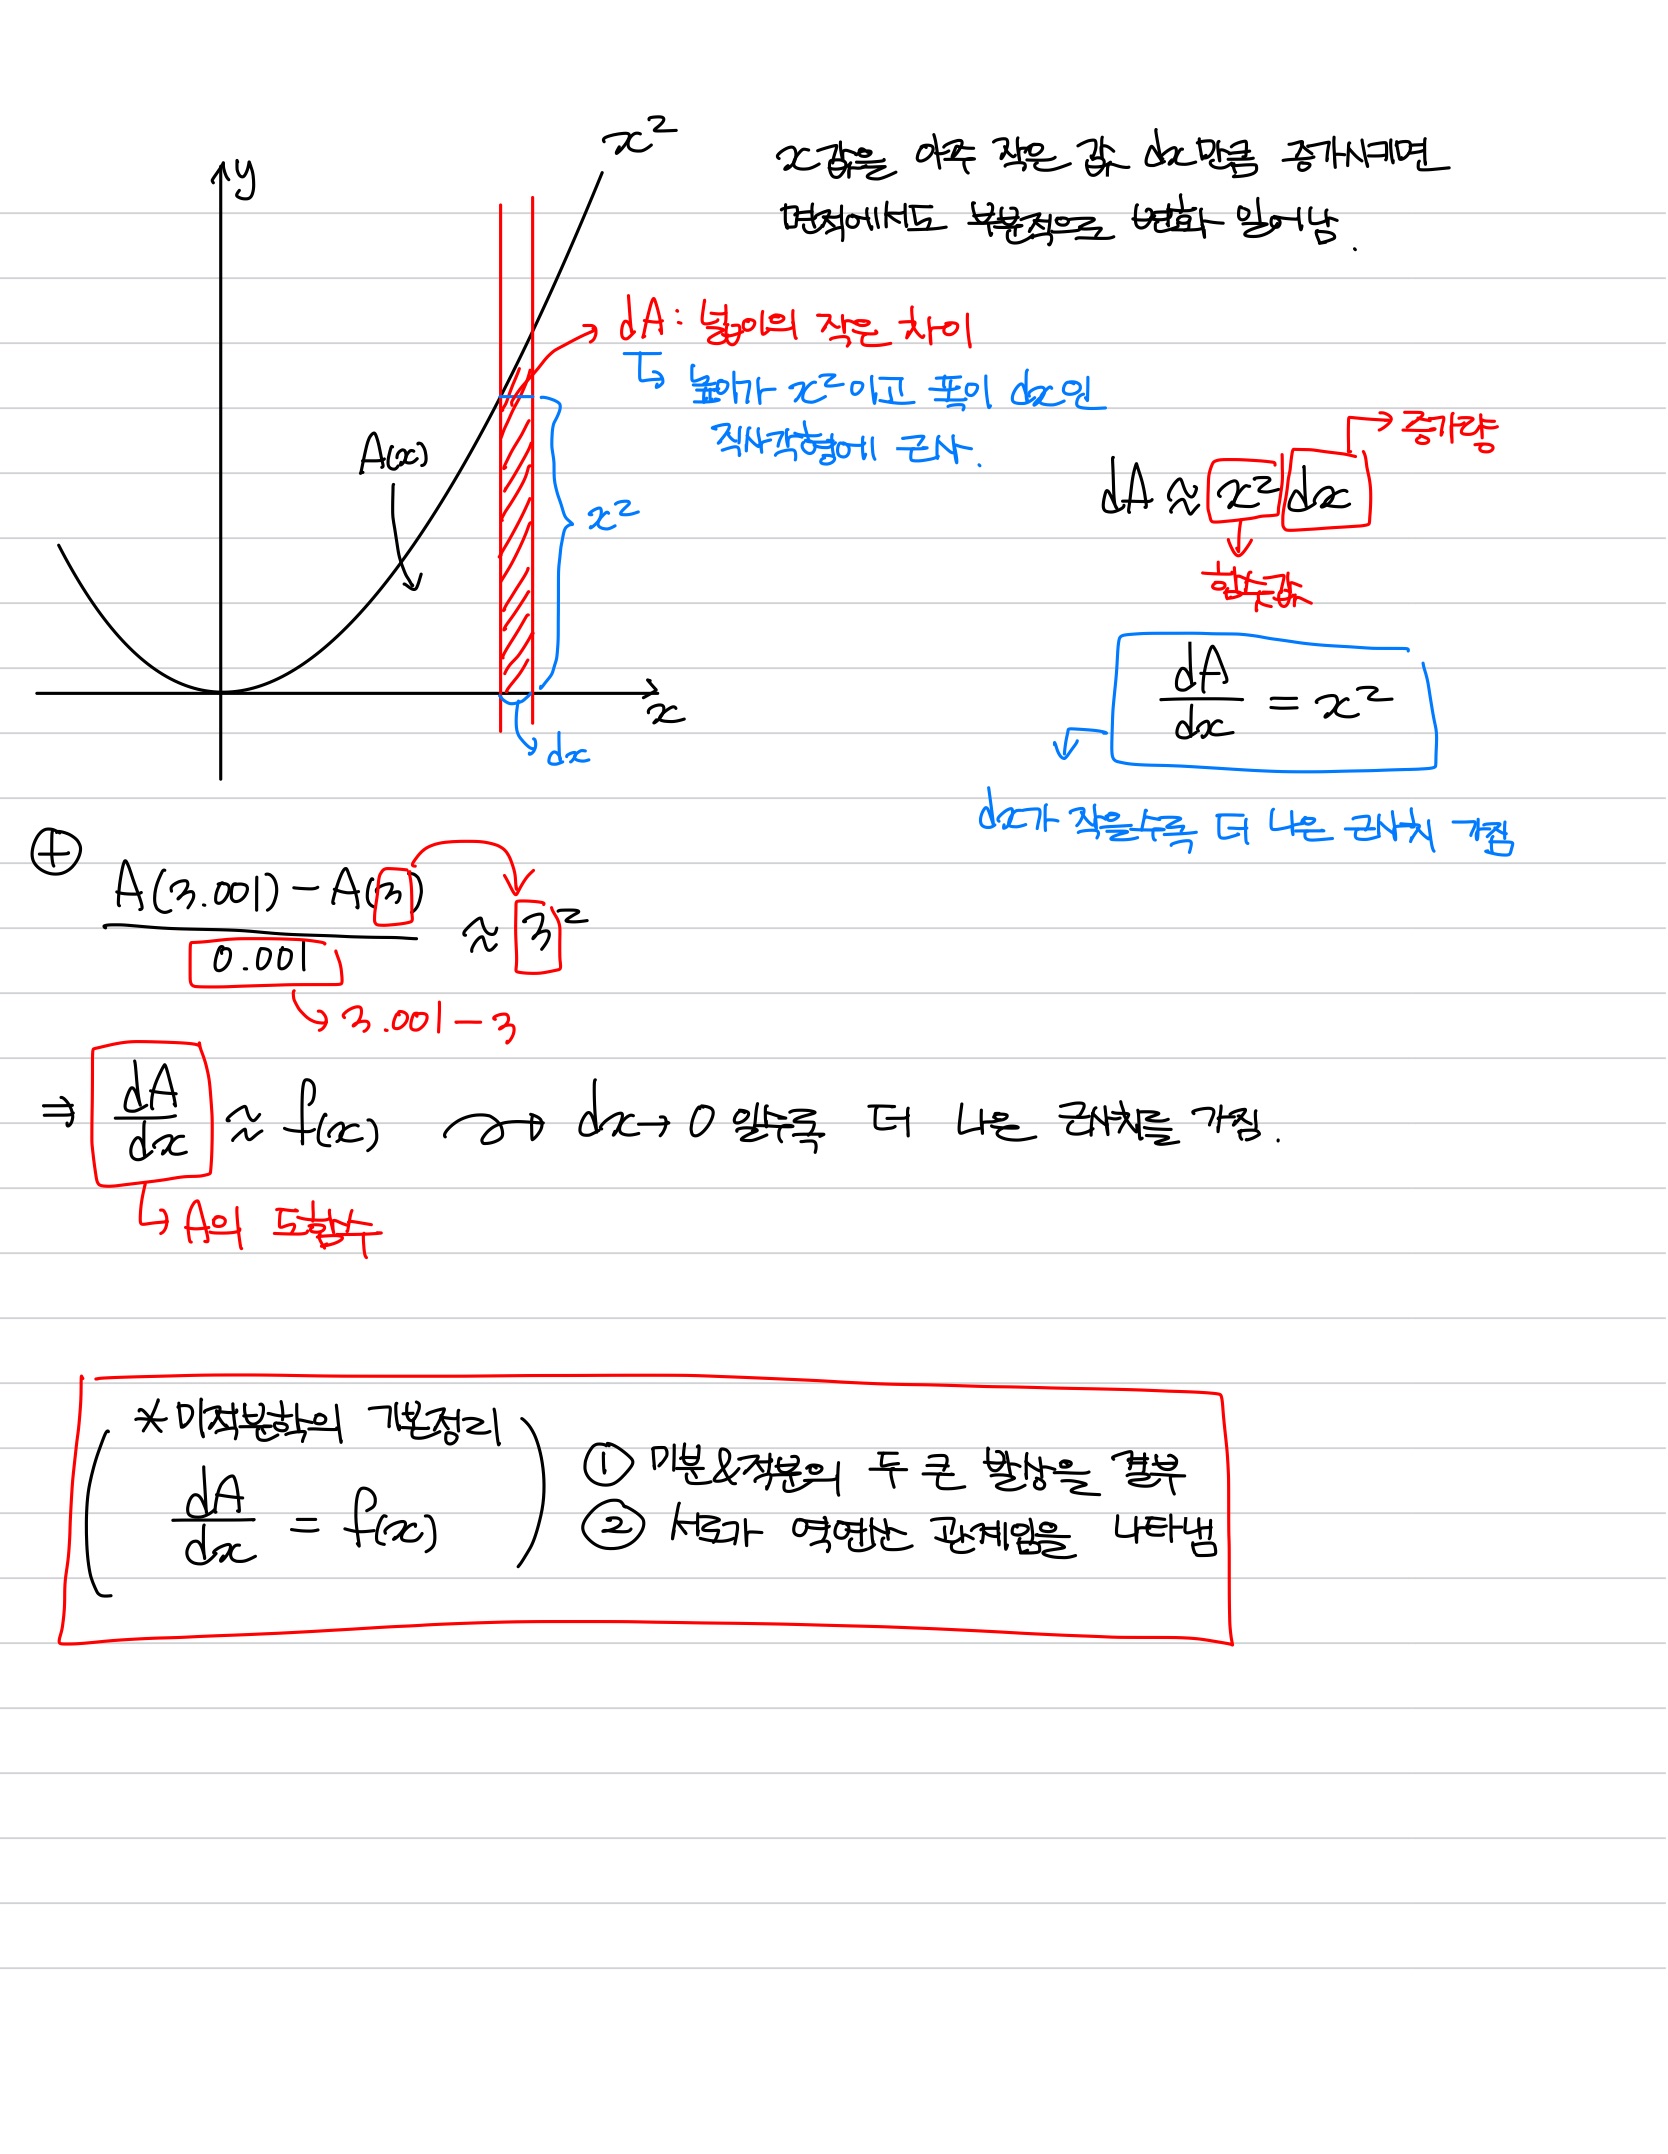 y
x²
x값을 아주 작은 값 dx만큼 증가시키면
면적에서도 부분적으로 변화 일어남.
dA : 넓이의 작은 차이
높이가 x²이고 폭이 dx인
직사각형에 근사.
A(x)
x²
x
dx
증가량
dA ≈ x² dx
함숫값
dA/dx = x²
dx가 작을수록 더 나은 근사치 가짐
⊕
A(3.001) - A(3) / 0.001 ≈ 3²
3.001 - 3
⇒ dA/dx ≈ f(x) → dx → 0 일수록 더 나은 근사치를 가짐.
A의 도함수
*미적분학의 기본정리
dA/dx = f(x)
① 미분&적분의 두 큰 발상을 결부
② 서로가 역연산 관계임을 나타냄